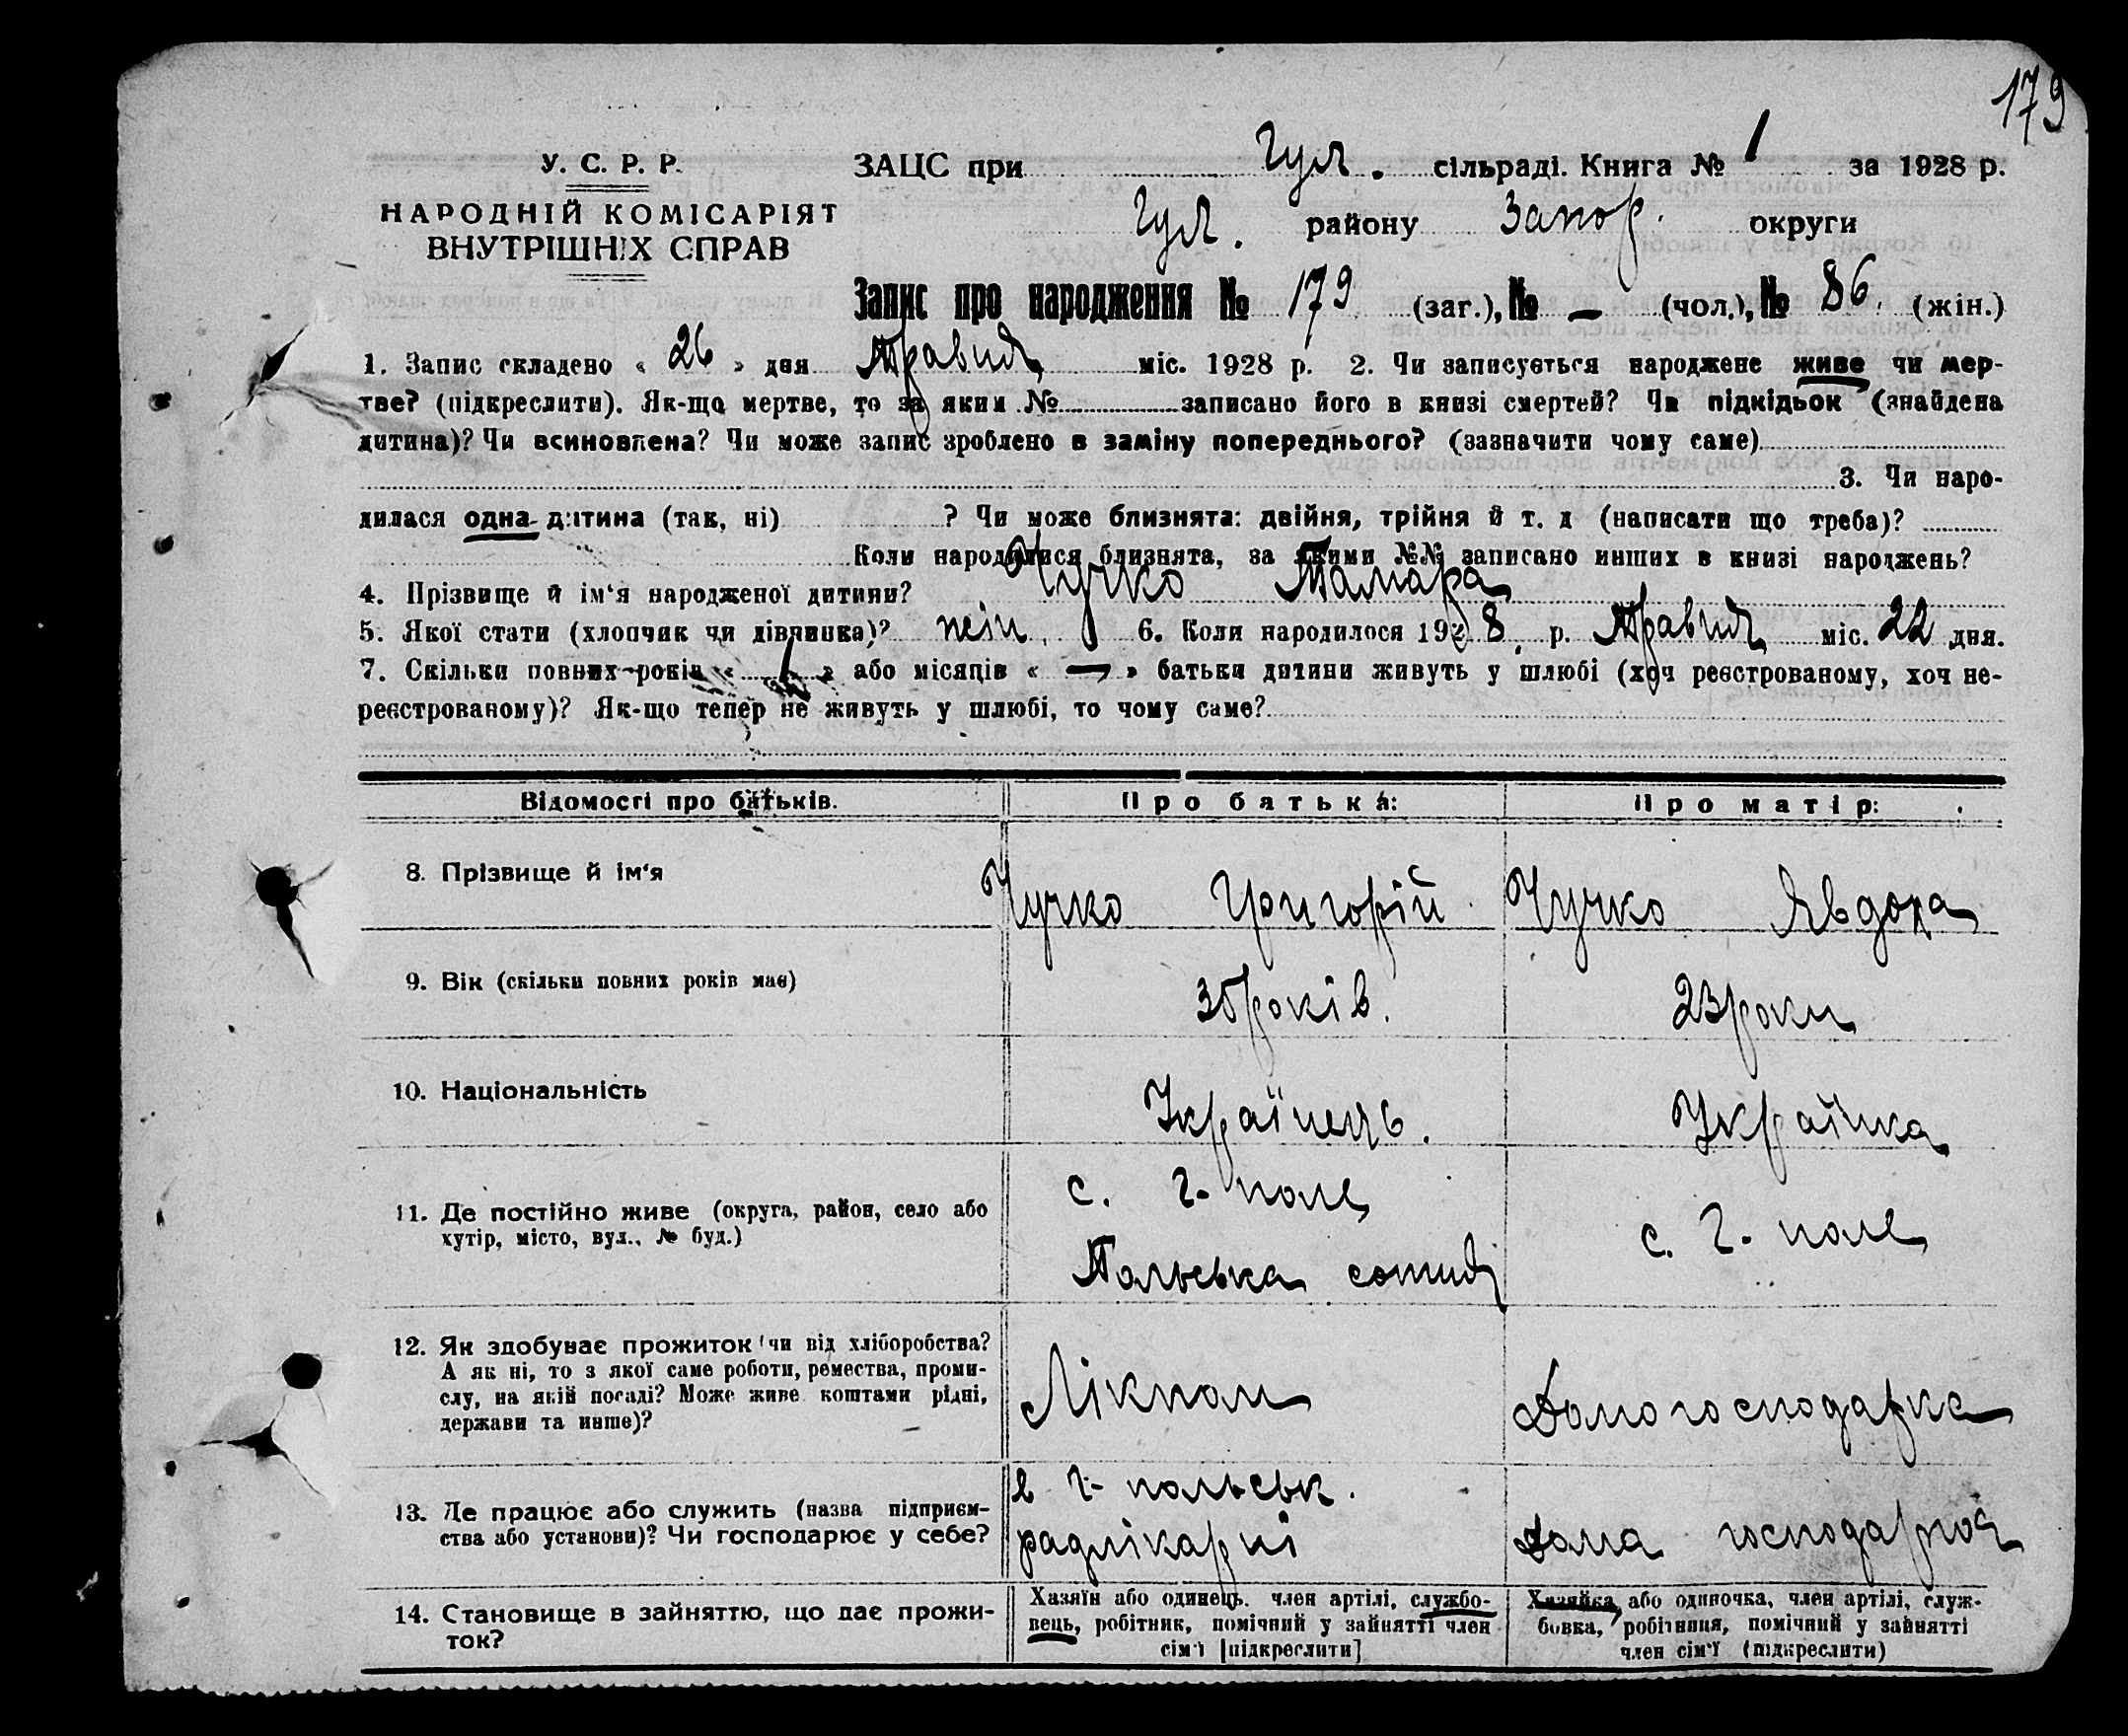 179
У. С. Р. Р.
НАРОДНІЙ КОМІСАРІЯТ
ВНУТРІШНІХ СПРАВ
ЗАЦС при Гул. сільраді. Книга № 1 за 1928 р.
Гул. району Запор. округи
Запис про народження № 179 (заг.), № — (чол.), № 86. (жін.)
1. Запис складено « 26 » дня Травня міс. 1928 р. 2. Чи записується народжене живе чи мер-
тве? (підкреслити). Як-що мертве, то за яким № записано його в книзі смертей? Чи підкідьок (знайдена
дитина)? Чи всиновлена? Чи може запис зроблено в заміну попереднього? (зазначити чому саме)
3. Чи наро-
дилася одна дитина (так, ні) ? Чи може близнята: двійня, трійня й т. д (написати що треба)?
Коли народилися близнята, за якими №№ записано инших в книзі народжень?
4. Прізвище й ім‘я народженої дитини? Чучко Тамара
5. Якої стати (хлопчик чи дівчинка)? 6. Коли народилося 1928 р. Травня міс. 22 дня.
7. Скільки повних років « 1 » або місяців « — » батьки дитини живуть у шлюбі (хоч реєстрованому, хоч не-
реєстрованому)? Як-що тепер не живуть у шлюбі, то чому саме?
Відомості про батьків. Про батька: Про матір:
8. Прізвище й ім‘я Чучко Григорій Чучко Явдоха
9. Вік (скільки повних років має) 35 років. 23 роки
10. Національність Українець. Українка
11. Де постійно живе (округа, район, село або
хутір, місто, вул., № буд.)
с. Г- поле
Польська сотня
с. Г- поле
12. Як здобуває прожиток чи від хліборобства?
А як ні, то з якої саме роботи, ремества, проми-
слу, на якій посаді? Може живе коштами рідні,
держави та инше)?
Лікпом
Домогосподарка
13. Де працює або служить (назва підприєм-
ства або установи)? Чи господарює у себе?
в Г- польськ.
радлікарні
дома господарює
14. Становище в зайняттю, що дає прожи-
ток?
Хазяїн або одинець. член артілі, службо-
вець, робітник, помічний у зайнятті член
сім‘ї [підкреслити]
Хазяйка, або одиночка, член артілі, служ-
бовка, робітниця, помічний у зайнятті
член сім‘ї (підкреслити)